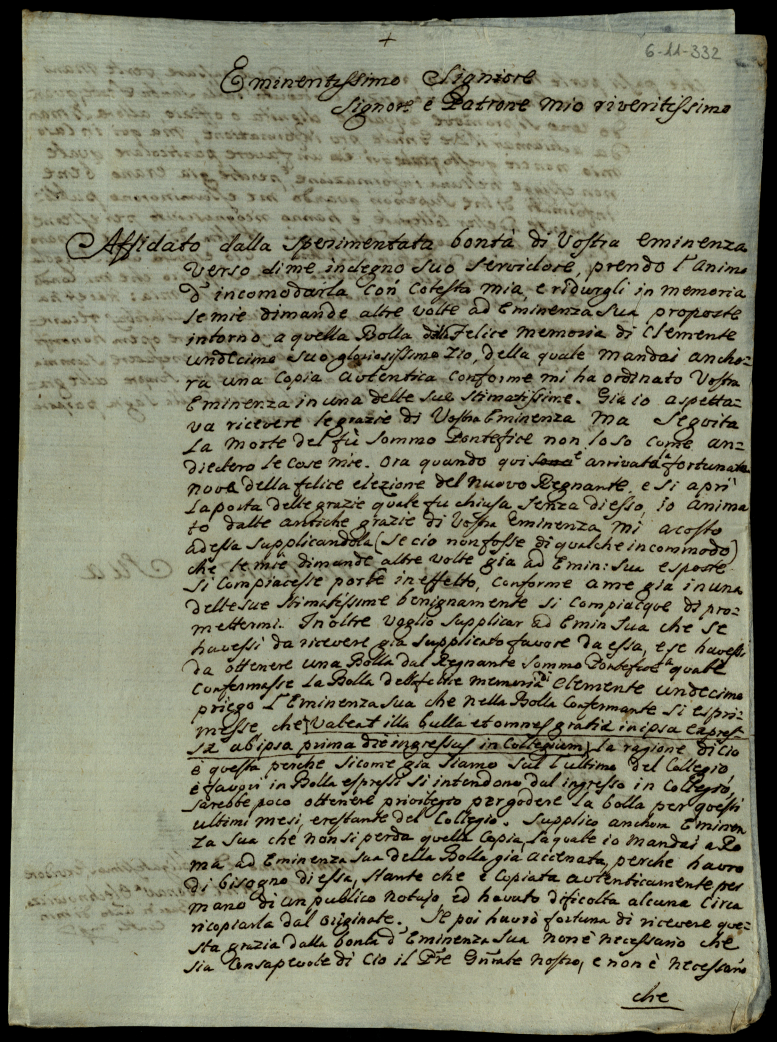 +
6-11-332
Eminentissimo Signiore
Signore e Patrone mio riveritissimo
Affidato dalla sperimentata bontà di Vostra Eminenza
verso di me indegno suo servidore, prendo l'animo
d'incomodarla con cotesta mia, e ridurgli in memoria
le mie dimande altre volte ad Eminenza Sua proposte
intorno a quella Bolla della Felice memoria di Clemente
undecimo suo gloriosissimo Zio, della quale mandai ancho-
ra una copia autentica conforme mi ha ordinato Vostra
Eminenza in una delle sue stimatissime. Gia io aspetta-
va ricevere le grazie di Vostra Eminenza ma seguita
la morte del fù Sommo Pontefice non lo so come an-
diedero le cose mie. Ora quando qui è arrivata la fortunata
nova della felice elezione del nuovo Regnante, e si aprì
la posta delle grazie quale fu chiusa senza di esso, io anima
to dalle antiche grazie di Vostra Eminenza mi acosto
ad essa supplicandola (se cio non fosse di qualche incommodo)
che le mie dimande altre volte gia ad Emin: Sua esposte
si compiacesse porle in effetto, conforme a me gia in una
delle sue stimatissime benignamente si compiacque di pro-
mettermi. Inoltre voglio supplicar ad Emin Sua che se
havessi da ricevere gia supplicato favore da essa, e se havessi
da ottenere una Bolla dal Regnante Sommo Pontefice la quale
confermasse la Bolla della felice memoria di Clemente undecimo
priego l'Eminenza Sua che nella Bolla Confermante si espri-
messe che (Valeat illa bulla et omnes gratiæ in ipsa expres-
sæ ab ipsa prima die ingressus in Collegium) la ragione di cio
è questa perche sicome gia siamo sul l'ultimo del Collegio
e favori in Bolla espressi si intendono dal ingresso in Collegio,
sarebbe poco ottenere privilegio per godere la bolla per questi
ultimi mesi, e restante del Collegio. Supplico anchora Eminen
za Sua che non si perda quella Copia, la quale io mandai a Ro
ma ad Eminenza Sua della Bolla gia accenata, perche havrò
di bisogno di essa, stante che è Copiata autenticamente per
mano di un publico notajo, ed havuto dificolta alcuna circa
ricopiarla dal originale. Se poi havrò fortuna di ricevere que-
sta grazia dalla bontà d'Eminenza Sua non è necessario che
sia consapevole di cio il Pre Gñrale nostro, e non è necessario
che